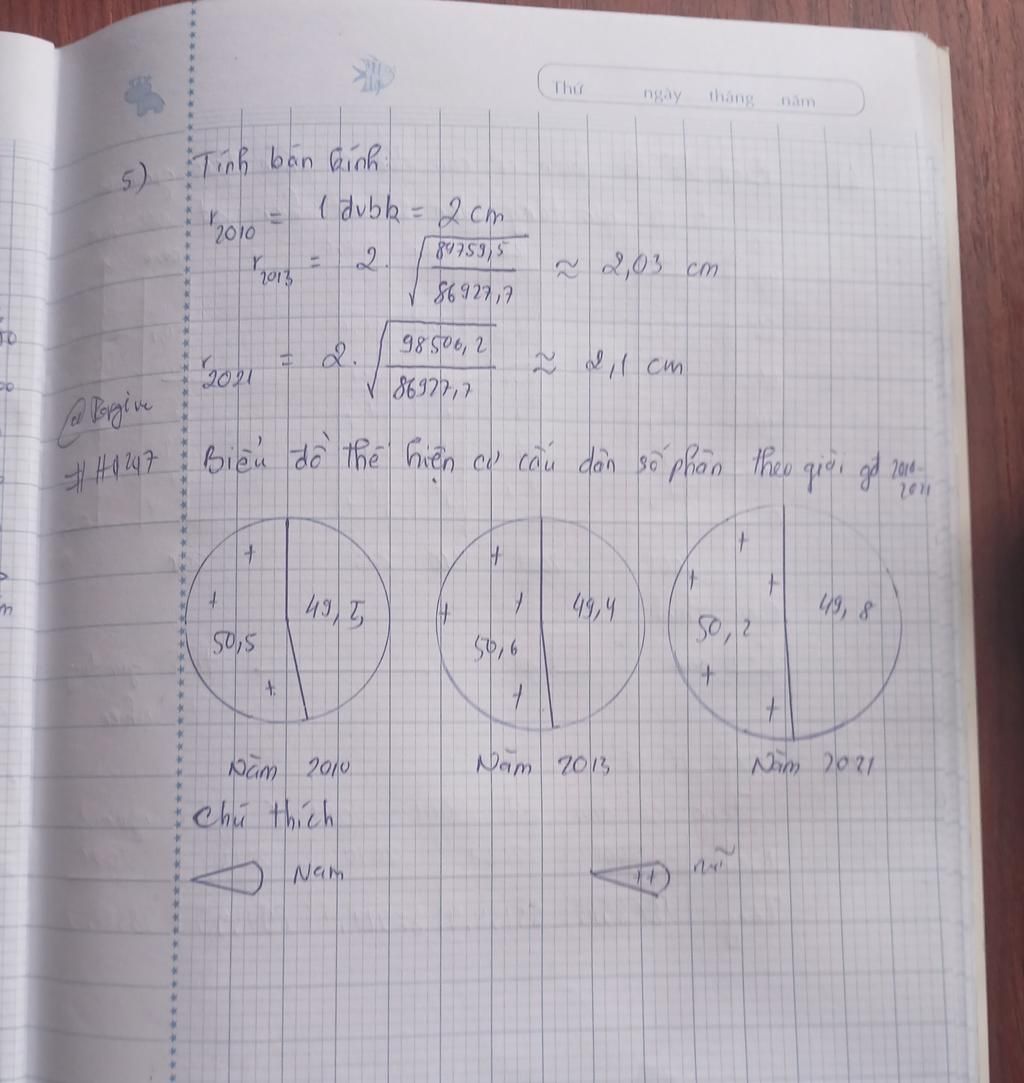 Thứ ngày tháng năm
5) Tính bán kính:
r2010 = 1 đvbk = 2 cm
r2013 = 2. √(89759,5 / 86927,7) ≈ 2,03 cm
r2021 = 2. √(98506,2 / 86927,7) ≈ 2,1 cm
#H4247
Biểu đồ thể hiện cơ cấu dân số phân theo giới gđ 2010-2021
+ + 50,5 + 49,5
+ + + 50,6 + 49,4
+ + + 50,2 + + 49,8
Năm 2010 Năm 2013 Năm 2021
Chú thích
Nam ++ nữ